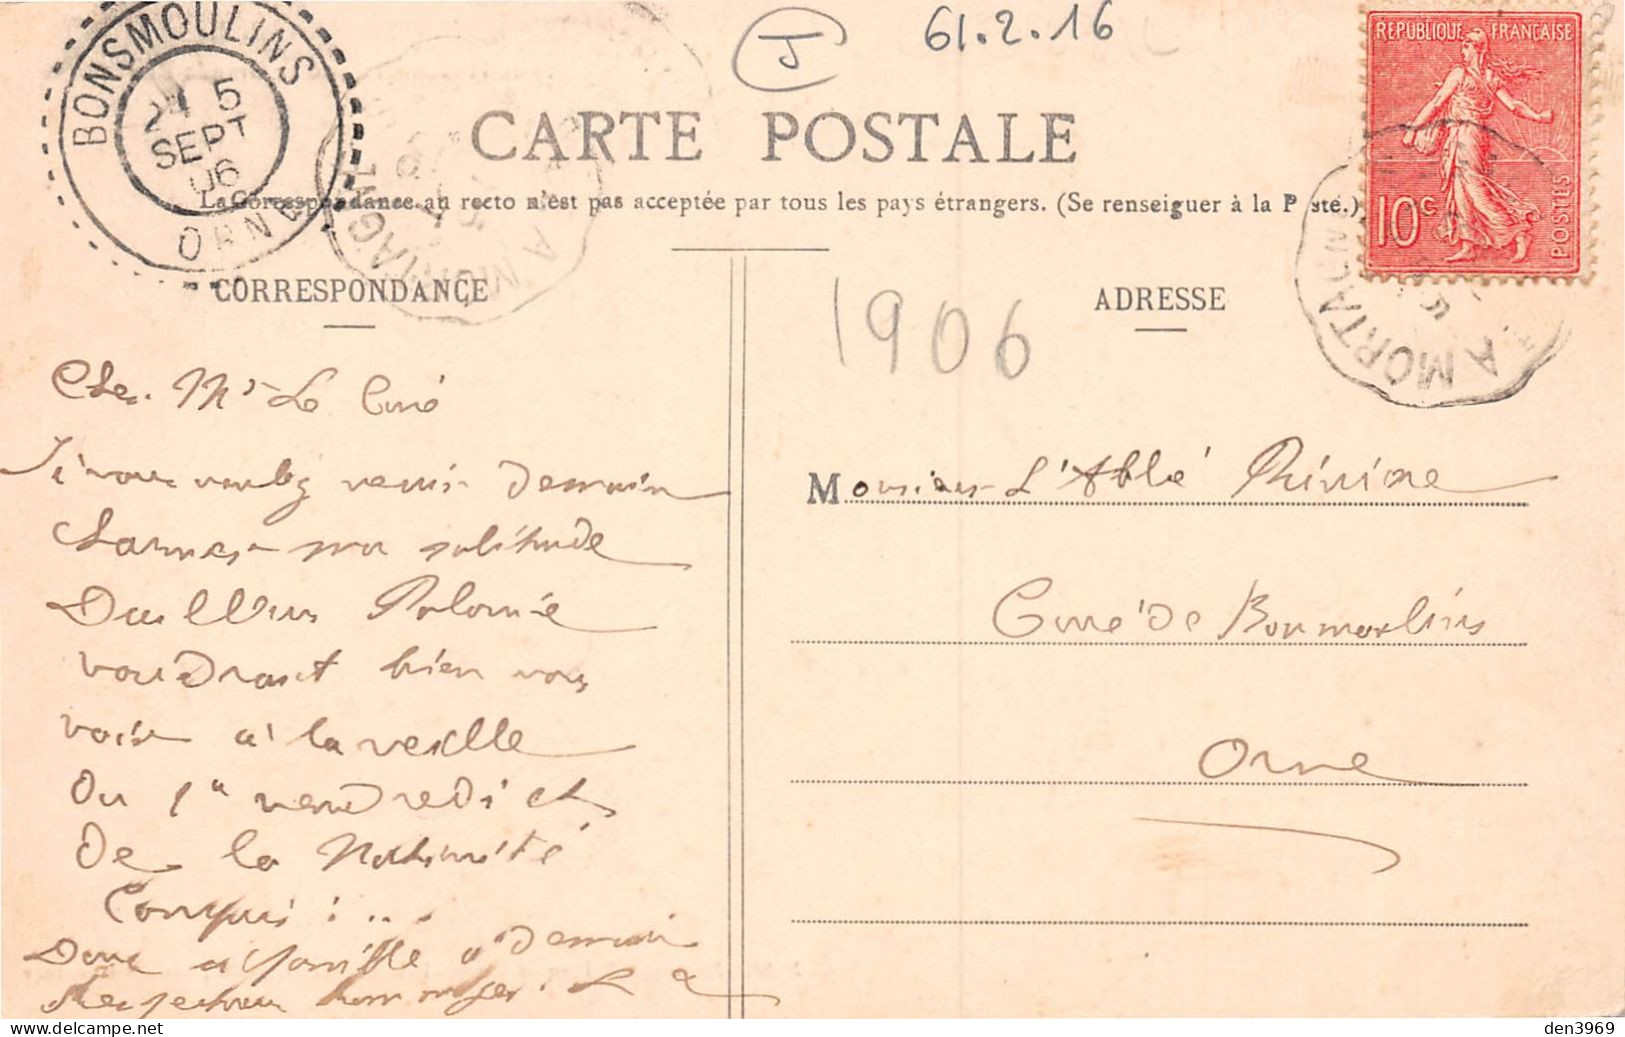 BONSMOULINS
5
SEPT
06
ORNE
J
61.2.16
REPUBLIQUE FRANÇAISE
10c
POSTES
A MORTAGNE
A MORTAGNE
CARTE POSTALE
La Correspondance au recto n'est pas acceptée par tous les pays étrangers. (Se renseigner à la Poste.)
CORRESPONDANCE
ADRESSE
1906
Cher Mr Le Curé
Si vous voulez venir demain
charmer ma solitude
D'ailleurs Polonie
voudrait bien vous
voir à la veille
Du 1er vendredi et
De la Nativité
Compris : ...
Donc à demain
Respectueux hommages. L
Monsieur L'Abbé
Curé de Bonmoulins
Orne
den3969